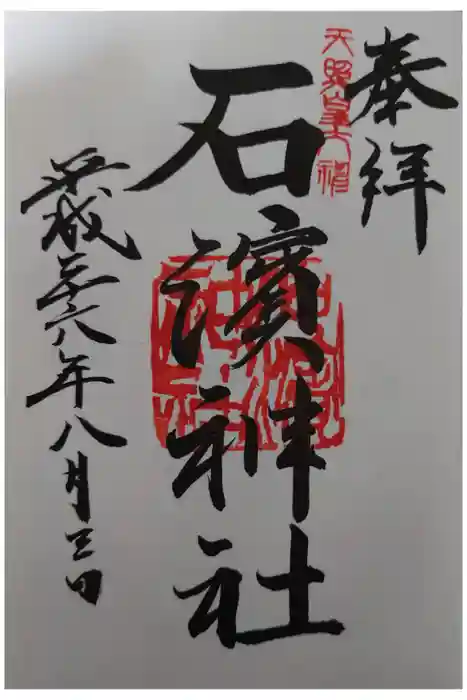 奉拝
天照皇大神
石濱神社
平成二十八年八月三日